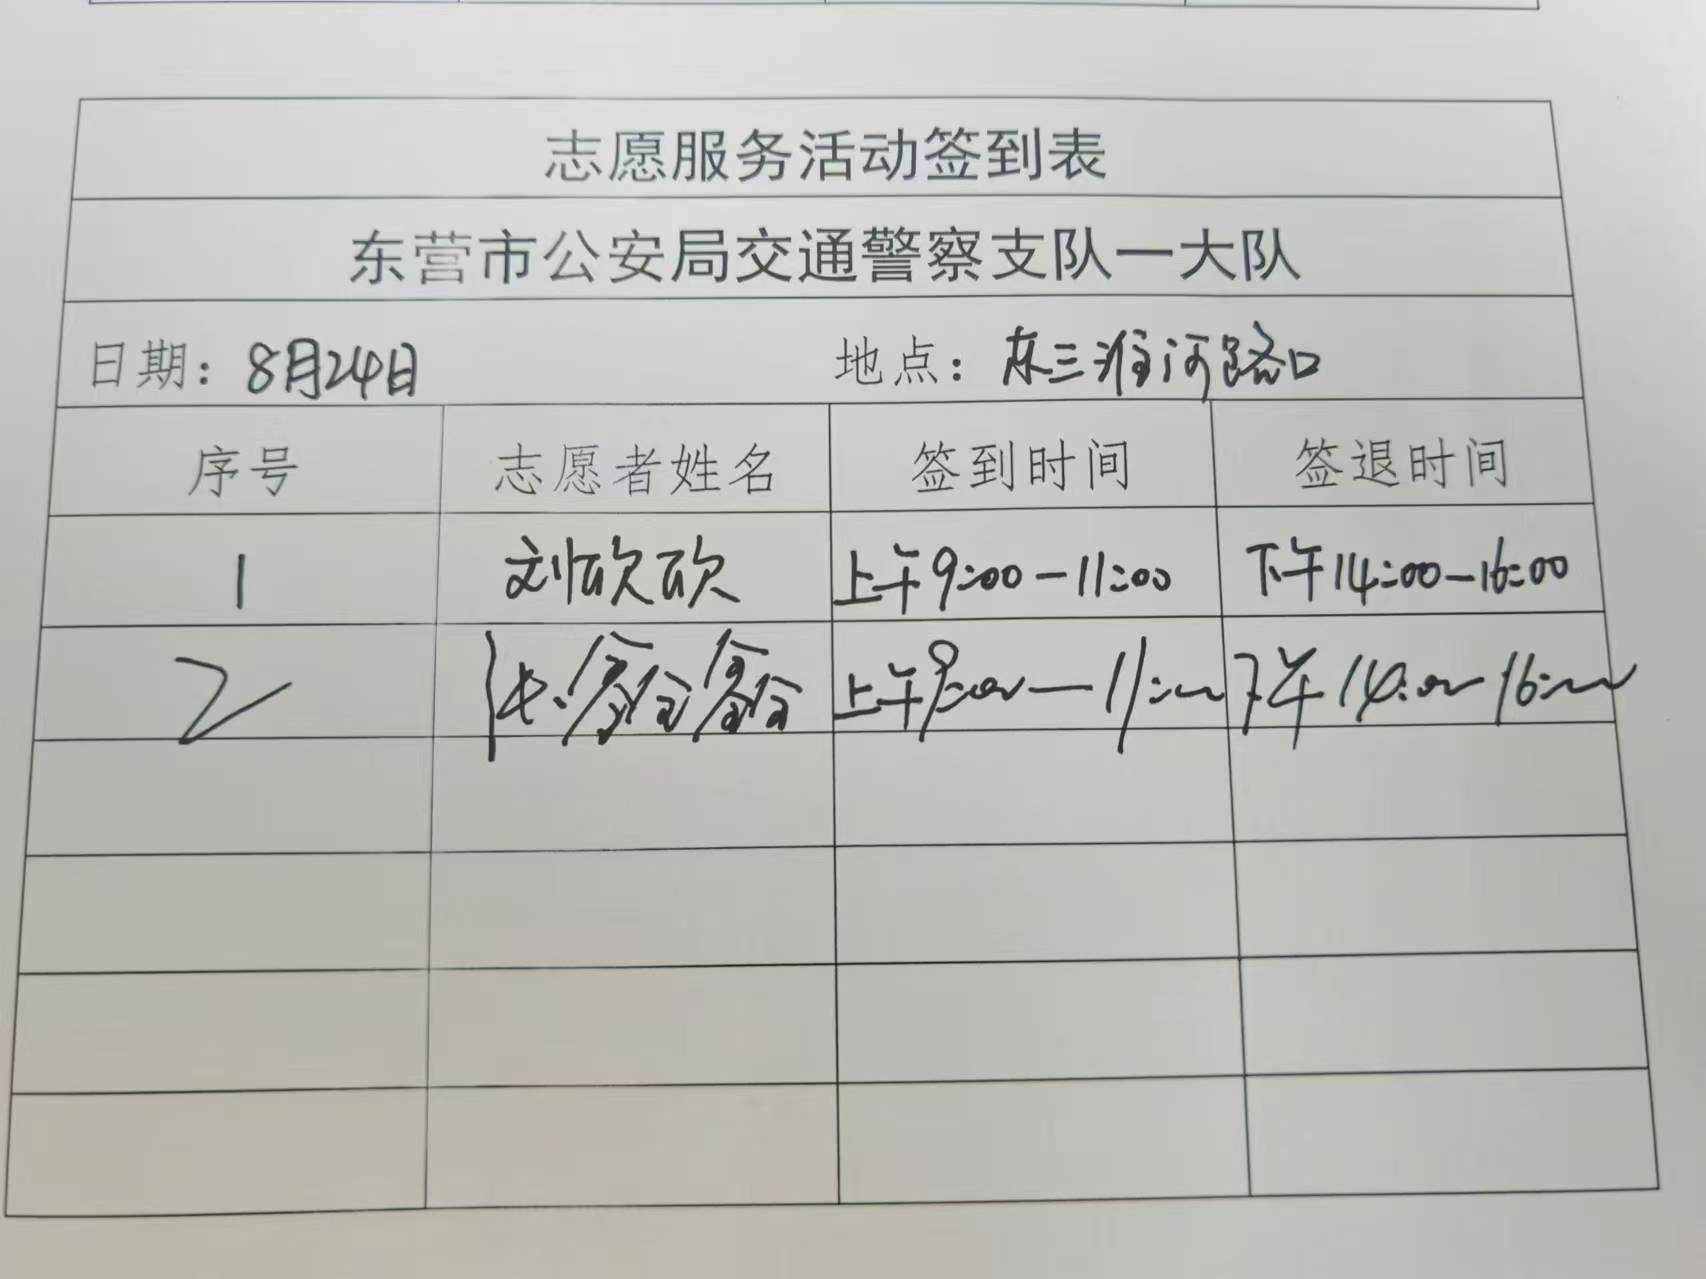 志愿服务活动签到表
东营市公安局交通警察支队一大队
日期：8月24日 地点：东三淮河路口
序号 志愿者姓名 签到时间 签退时间
1 刘欣欣 上午9:00-11:00 下午14:00-16:00
2 上午9:00-11:00 下午14:00-16:00